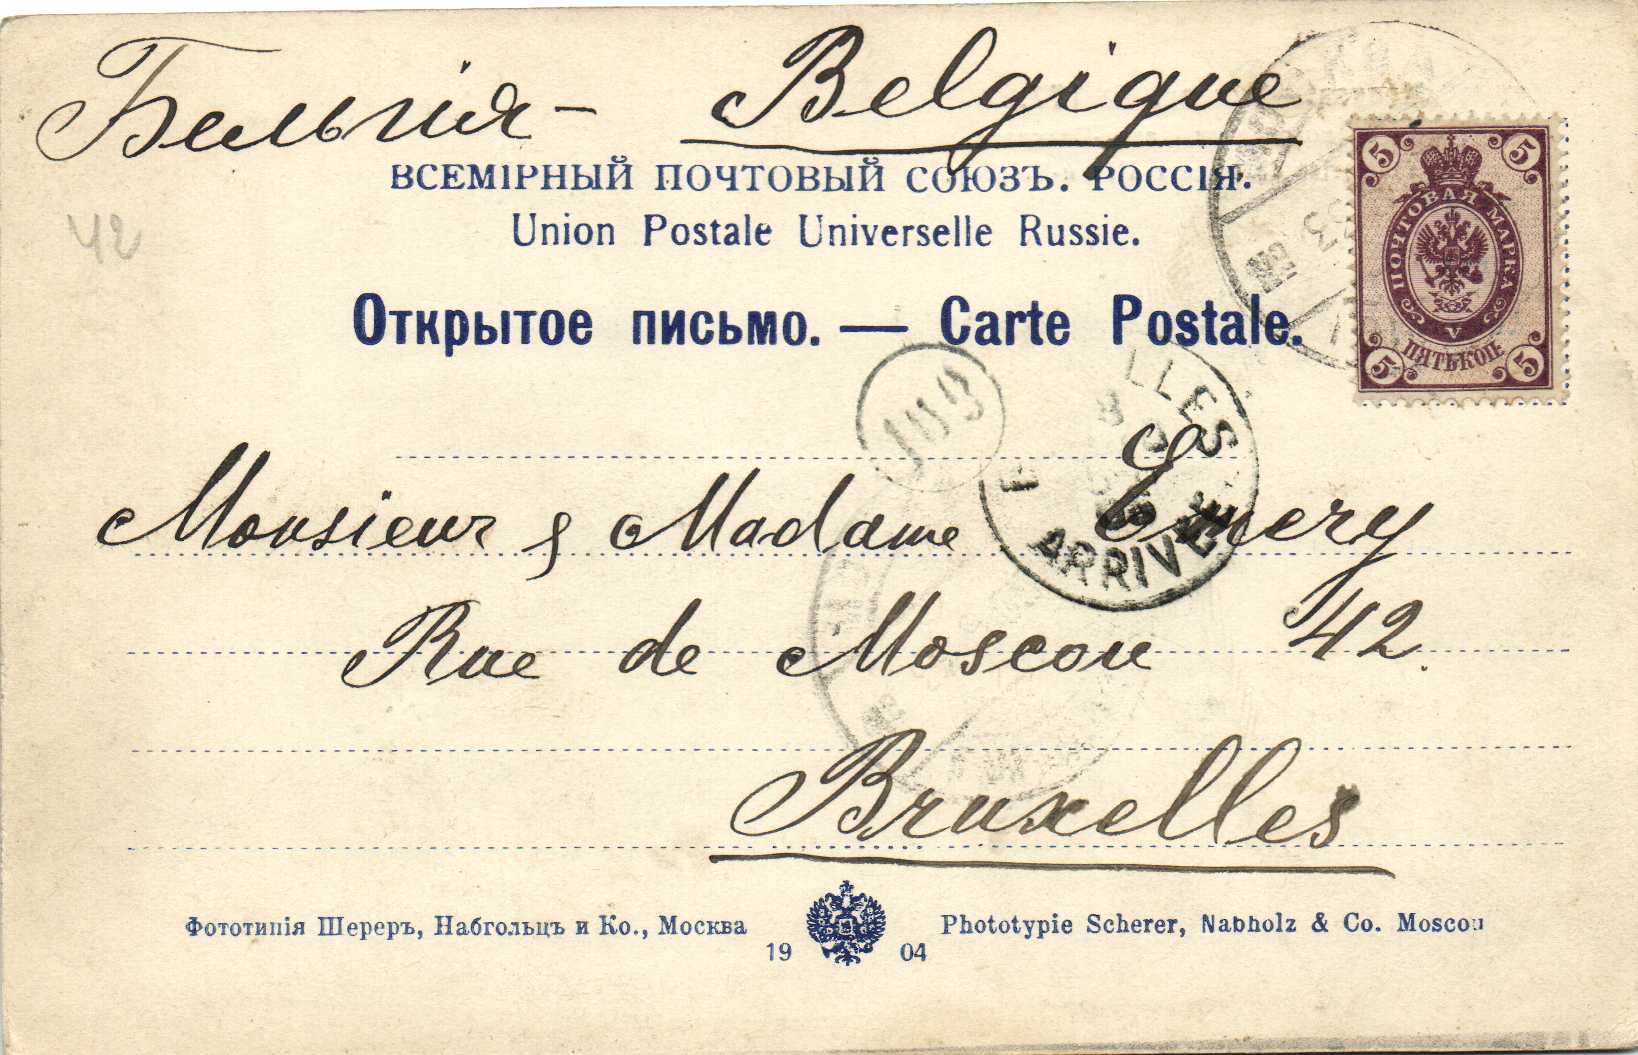 Бельгія – Belgique
ВСЕМІРНЫЙ ПОЧТОВЫЙ СОЮЗЪ. РОССІЯ.
Union Postale Universelle Russie.
42
5 5
ПОЧТОВАЯ МАРКА
V
ПЯТЬ КОП.
5 5
Открытое письмо. — Carte Postale.
103
LLES
ARRIVEE
Monsieur & Madame Emery
Rue de Moscou 42.
Bruxelles
Фототипія Шереръ, Набгольцъ и Ко., Москва
19 04
Phototypie Scherer, Nabholz & Co. Moscou